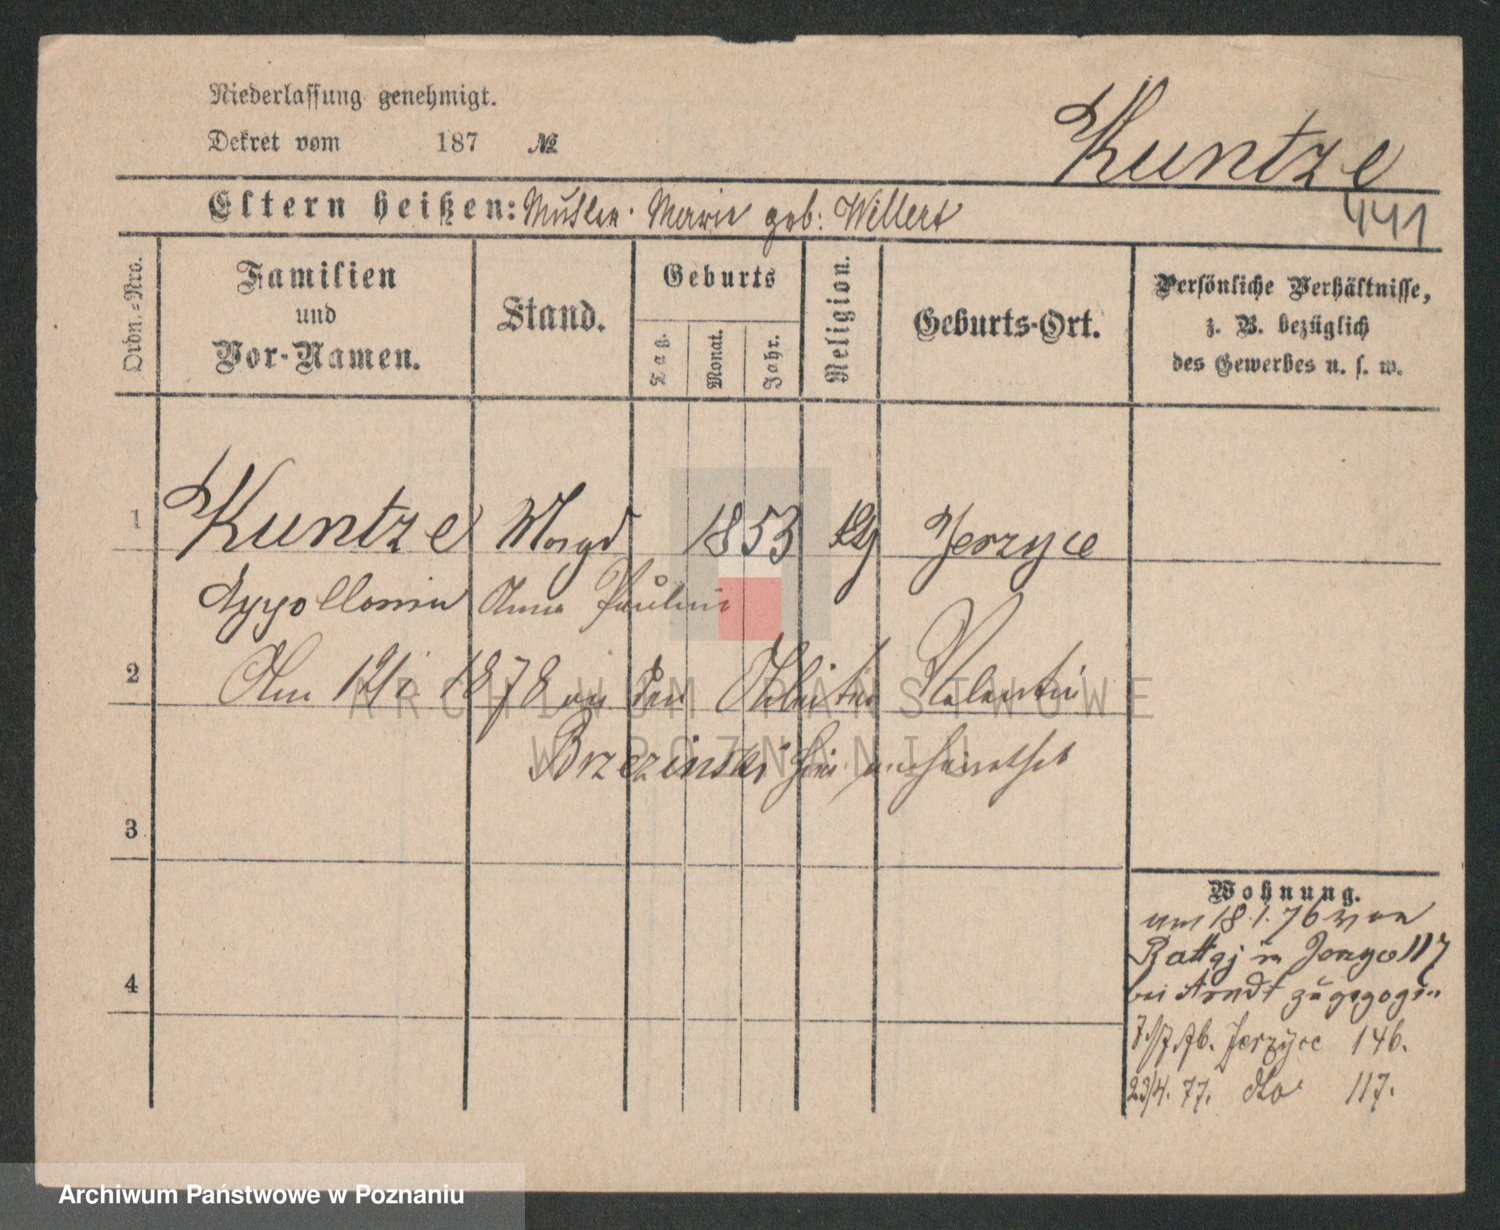 Niederlassung genehmigt.
Dekret vom 187 №
Kuntze
Eltern heißen: Mutter. Marie geb: Willert
441
Ordn.-Nro.
Familien
und
Vor-Namen.
Stand.
Geburts
Tag.
Monat.
Jahr.
Religion.
Geburts-Ort.
Persönliche Verhältnisse,
z. B. bezüglich
des Gewerbes u. s. w.
1 Kuntze Magd 1853 Jerzyce
Appollonia Anna Pauline
2 Am 1878 an den Arbeiter Valentin
Brzezinski hier verheirathet
3
4
Wohnung.
am 18.1.76 von
Rattaj in Jerzyce 117
bei Arndt zugezogen
7./7.76. Jerzyce 146.
23/4. 77. dto 117.
ARCHIWUM PAŃSTWOWE
W POZNANIU
Archiwum Państwowe w Poznaniu